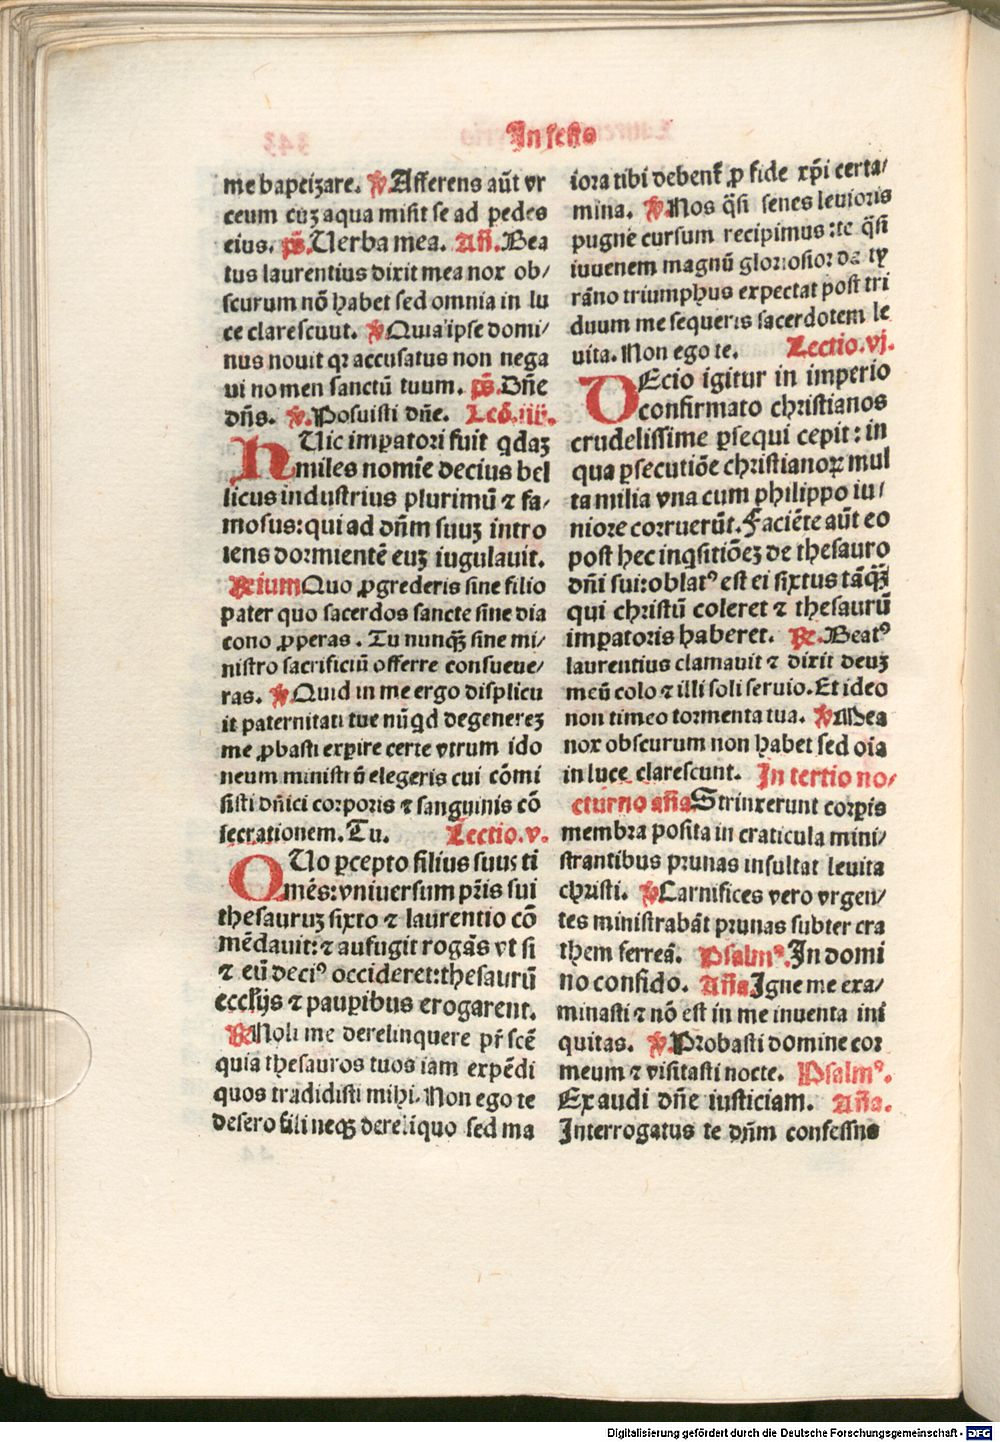 In festo
me bapeizare. ꝟ Afferens aūt vr
ceum cuꝫ aqua misit se ad pedes
eius. p̄s. Uerba mea. Añ. Bea
tus laurentius dixit mea nox ob/
scurum nō habet sed omnia in lu
ce clarescuut. ꝟ Quia ipse domi/
nus nouit qꝛ accusatus non nega
ui nomen sanctū tuum. p̄s. Dñe
dñs. ꝟ. Posuisti dñe. Lcō. iiij.
hUic imꝑatori fuit qͥdaꝫ
miles nomīe decius bel
licus industrius plurimū ⁊ fa/
mosus: qui ad dñm suuꝫ intro
iens dormientē euꝫ iugulauit.
℞rium Quo ꝓgrederis sine filio
pater quo sacerdos sancte sine dia
cono ꝓperas. Tu nunqꝫ̄ sine mi/
nistro sacrificiū offerre consueue/
ras. ꝟ Quid in me ergo displicu
it paternitati tue nūqͥd degenereꝫ
me ꝓbasti exꝑire certe vtrum ido
neum ministrū elegeris cui cōmi
sisti dñici corporis ⁊ sanguinis cō
secrationem. Tu. Lectio. v.
QUo ꝑcepto filius suus ti
mēs: vniuersum pr̄is sui
thesauruꝫ sixto ⁊ laurentio cō
mēdauit: ⁊ aufugit rogās vt si
⁊ eū deciꝰ occideret: thesaurū
eccl̄ijs ⁊ pauꝑibus erogarent.
℞ Noli me derelinquere pr̄ scē
quia thesauros tuos iam expēdi
quos tradidisti mihi. Non ego te
desero fili neqꝫ dereliquo sed ma
iora tibi debent̄ ꝓ fide xp̄i certa/
mina. ꝟ. Nos q̄si senes leuioris
pugne cursum recipimus: te q̄si
iuuenem magnū gloriosior de ty
rāno triumphus expectat post tri
duum me sequeris sacerdotem le
uita. Non ego te. Lectio. vj.
DEcio igitur in imperio
confirmato christianos
crudelissime ꝑsequi cepit: in
qua ꝑsecutiōe christianoꝝ mul
ta milia vna cum philippo iu/
niore corruerūt. Faciēte aūt eo
post hec inqͥsitiōeꝫ de thesauro
dñi sui: oblatꝰ est ei sixtus tāqꝫ̄
qui christū coleret ⁊ thesaurū
imꝑatoris haberet. ℞. Beatꝰ
laurentius clamauit ⁊ dixit deuꝫ
meū colo ⁊ illi soli seruio. Et ideo
non timeo tormenta tua. ꝟ Mea
nox obscurum non habet sed oīa
in luce clarescunt. In tertio no/
cturno aña Strinxerunt corꝑis
membra posita in craticula mini/
strantibus prunas insultat leuita
christi. ꝟ Carnifices vero vrgen/
tes ministrabāt prunas subter cra
them ferreā. Psalmꝰ. In domi
no confido. Añа Igne me exa/
minasti ⁊ nō est in me inuenta ini
quitas. ꝟ. Probasti domine cor
meum ⁊ visitasti nocte. Psalmꝰ.
Exaudi dñe iusticiam. Añа.
Interrogatus te dñm confessus
Digitalisierung gefördert durch die Deutsche Forschungsgemeinschaft - DFG